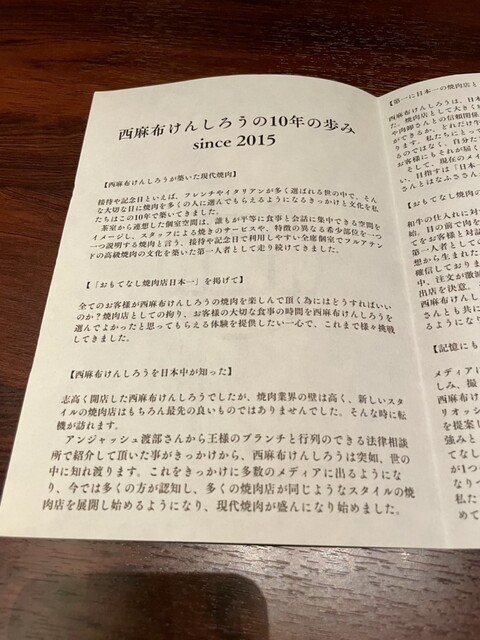 西麻布けんしろうの10年の歩み
since 2015
【西麻布けんしろうが築いた現代焼肉】
接待や記念日といえば、フレンチやイタリアンが多く選ばれる世の中で、そん
な大切な日に焼肉を多くの人に選んでもらえるようになるきっかけと文化を私
たちはこの10年で築いてきました。
茶室から連想した個室空間は、誰もが平等に食事と会話に集中できる空間を
イメージし、スタッフによる焼きのサービスや、特徴の異なる希少部位を一つ
一つ説明する焼肉と言う、接待や記念日で利用しやすい全席個室でフルアテン
ドの高級焼肉の文化を築いた第一人者として走り続けてきました。
【「おもてなし焼肉店日本一」を掲げて】
全てのお客様が西麻布けんしろうの焼肉を楽しんで頂く為にはどうすればいい
のか？焼肉店としての拘り、お客様の大切な食事の時間を西麻布けんしろうを
選んでよかったと思ってもらえる体験を提供したい一心で、これまで様々挑戦
してきました。
【西麻布けんしろうを日本中が知った】
志高く開店した西麻布けんしろうでしたが、焼肉業界の壁は高く、新しいスタ
イルの焼肉店はもちろん最先の良いものではありませんでした。そんな時に転
機が訪れます。
アンジャッシュ渡部さんから王様のブランチと行列のできる法律相談
所で紹介して頂いた事がきっかけから、西麻布けんしろうは突如、世の
中に知れ渡ります。これをきっかけに多数のメディアに出るようにな
り、今では多くの方が認知し、多くの焼肉店が同じようなスタイルの焼
肉店を展開し始めるようになり、現代焼肉が盛んになり始めました。
【第一に日本一の焼肉店と
西麻布けんしろうは、日本
た。焼肉店として大きく
や肉卸さんとの信頼関係
ができるか、どれだけ牛
ります。私たちにとって
るのではなく、自分た
お客様にもそれが届く
そして、現在のメイ
目指すは「日本一
さんとはなふささん
【おもてなし焼肉の
和牛の仕入れに対
始。目の前で肉を
てをお客様と対話
第一人者としての
想から生まれた
確信しておりま
中、注文が激減
出店を決意。
西麻布けんし
さんとも共に
るようになり
【記憶にも
メディアに
しみ、撮
リオッシ
を提案し
強みと
てなし
が1つ
なりつ
私た
めて